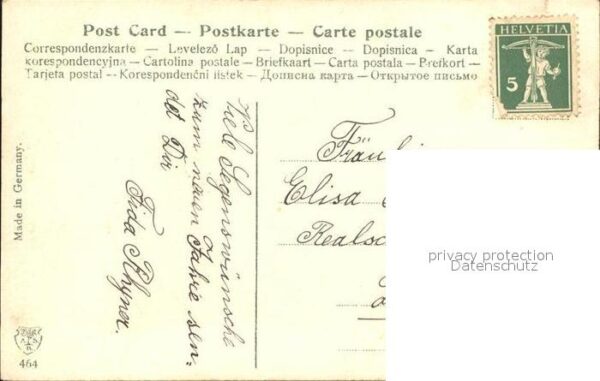 Post Card – Postkarte – Carte postale
Correspondenzkarte – Levelező Lap – Dopisnice – Dopisnica – Karta
korespondencyjna – Cartolina postale – Briefkaart – Carta postala – Brefkort –
Tarjeta postal – Korespondenční lístek – Дописна карта – Открытое письмо
HELVETIA
5
Viele Segenswünsche
zum neuen Jahre sen-
det Dir
Frida Rhyner.
Elisa
Made in Germany.
464
privacy protection
Datenschutz